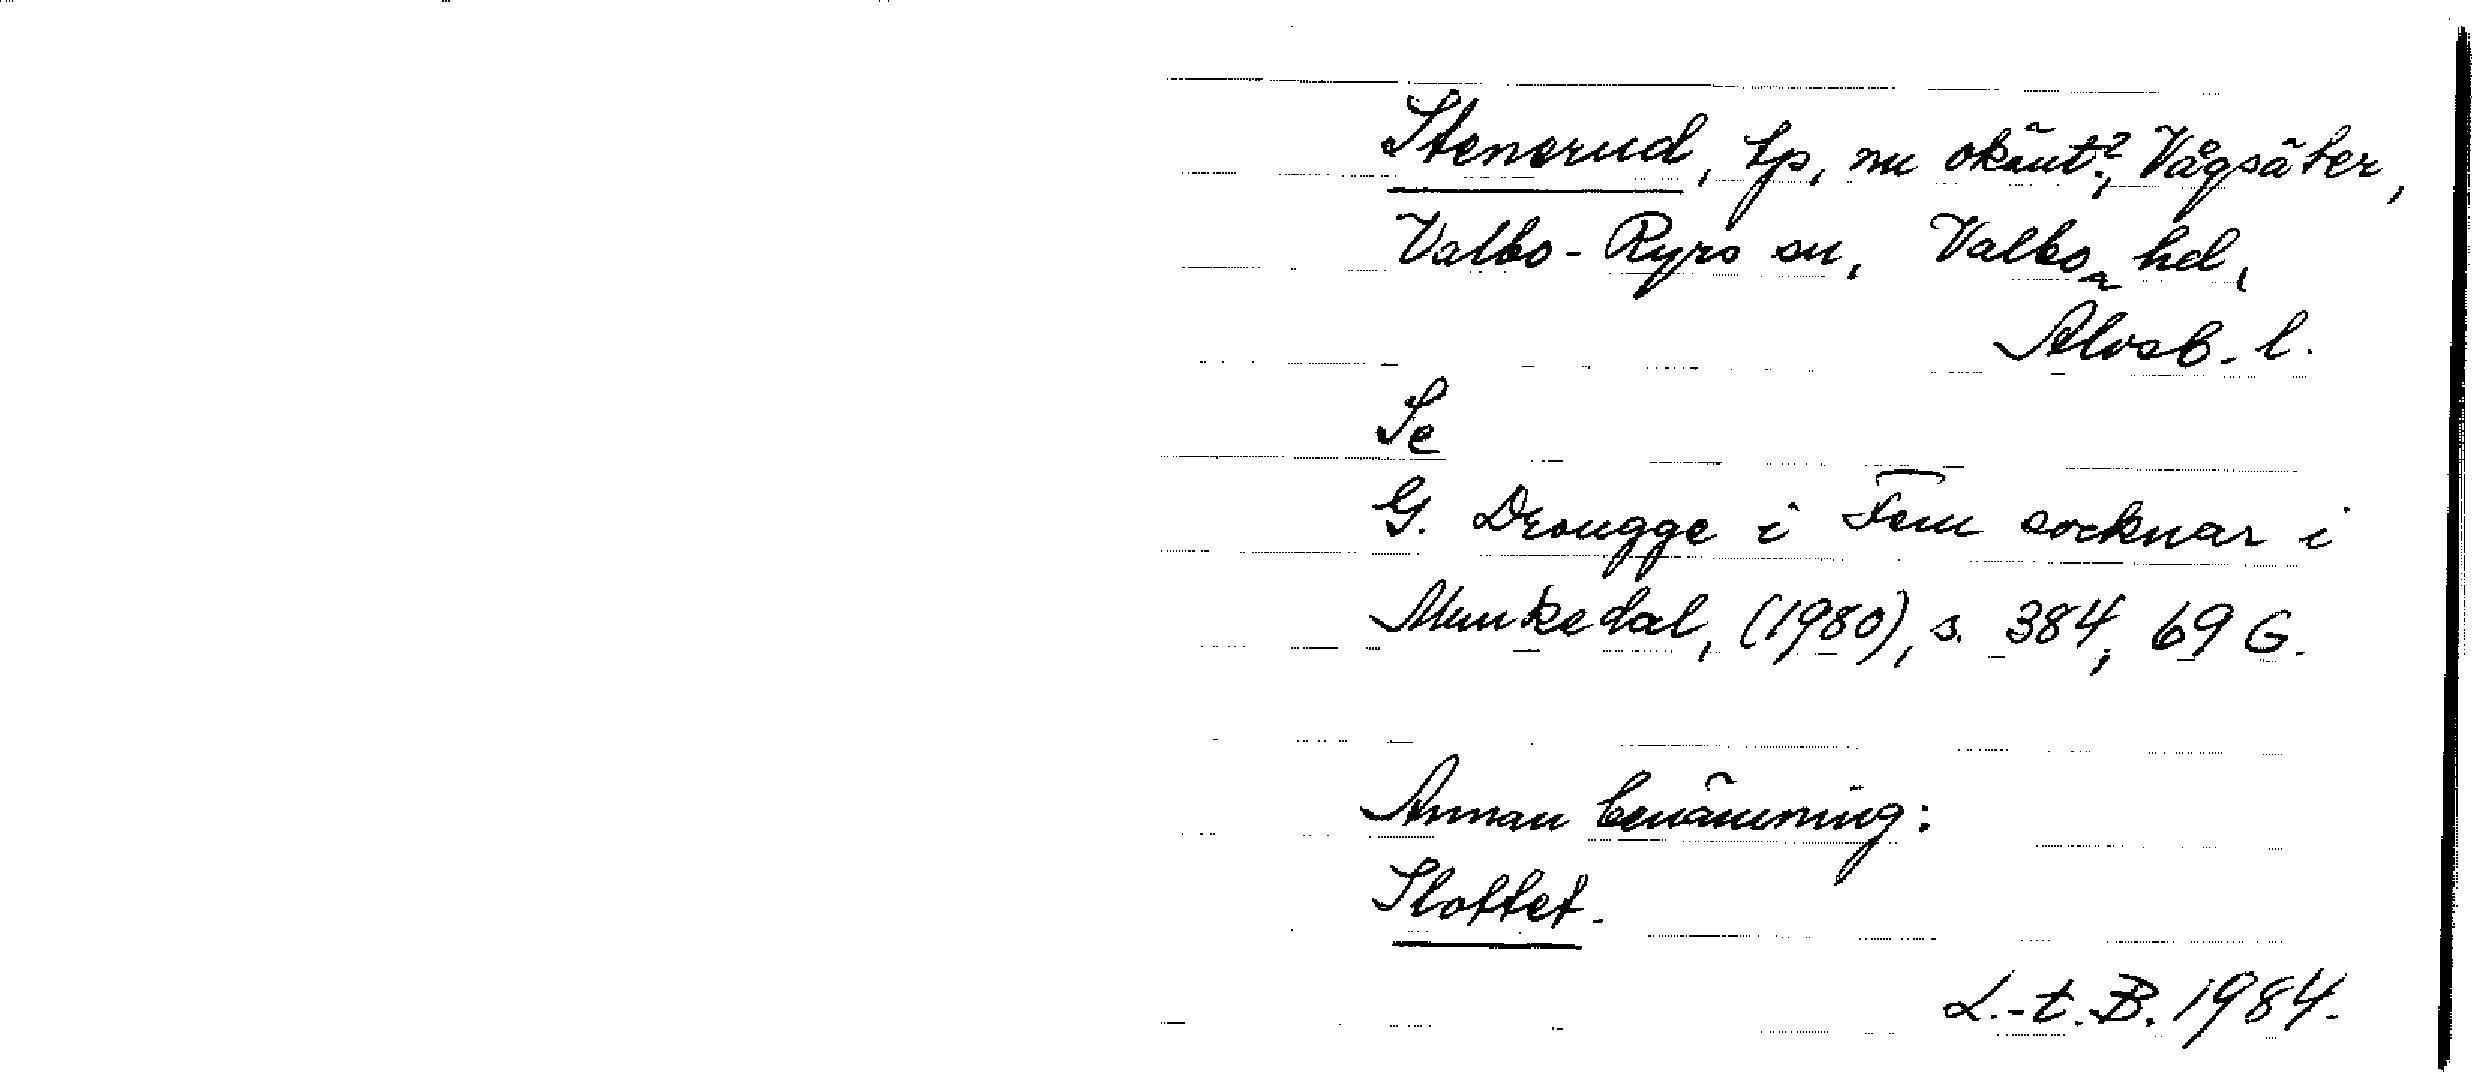 Stenerud, tp, nu okänt?, Vågsäter,
Valbo-Ryrs sn, Valbo hd,
Älvsb. l.
Se
G. Drougge i Fem socknar i
Munkedal, (1980), s. 384, 69 G.
Annan benämning:
Slottet.
L.-t. B. 1984.